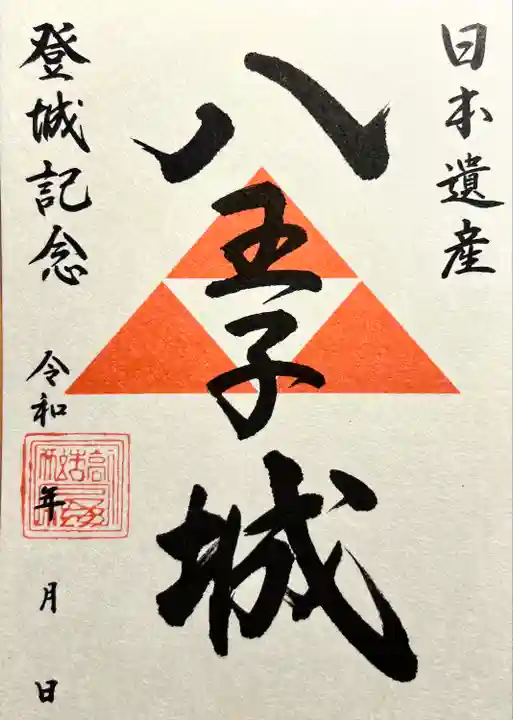 日本遺産
八王子城
登城記念
令和
年
月
日